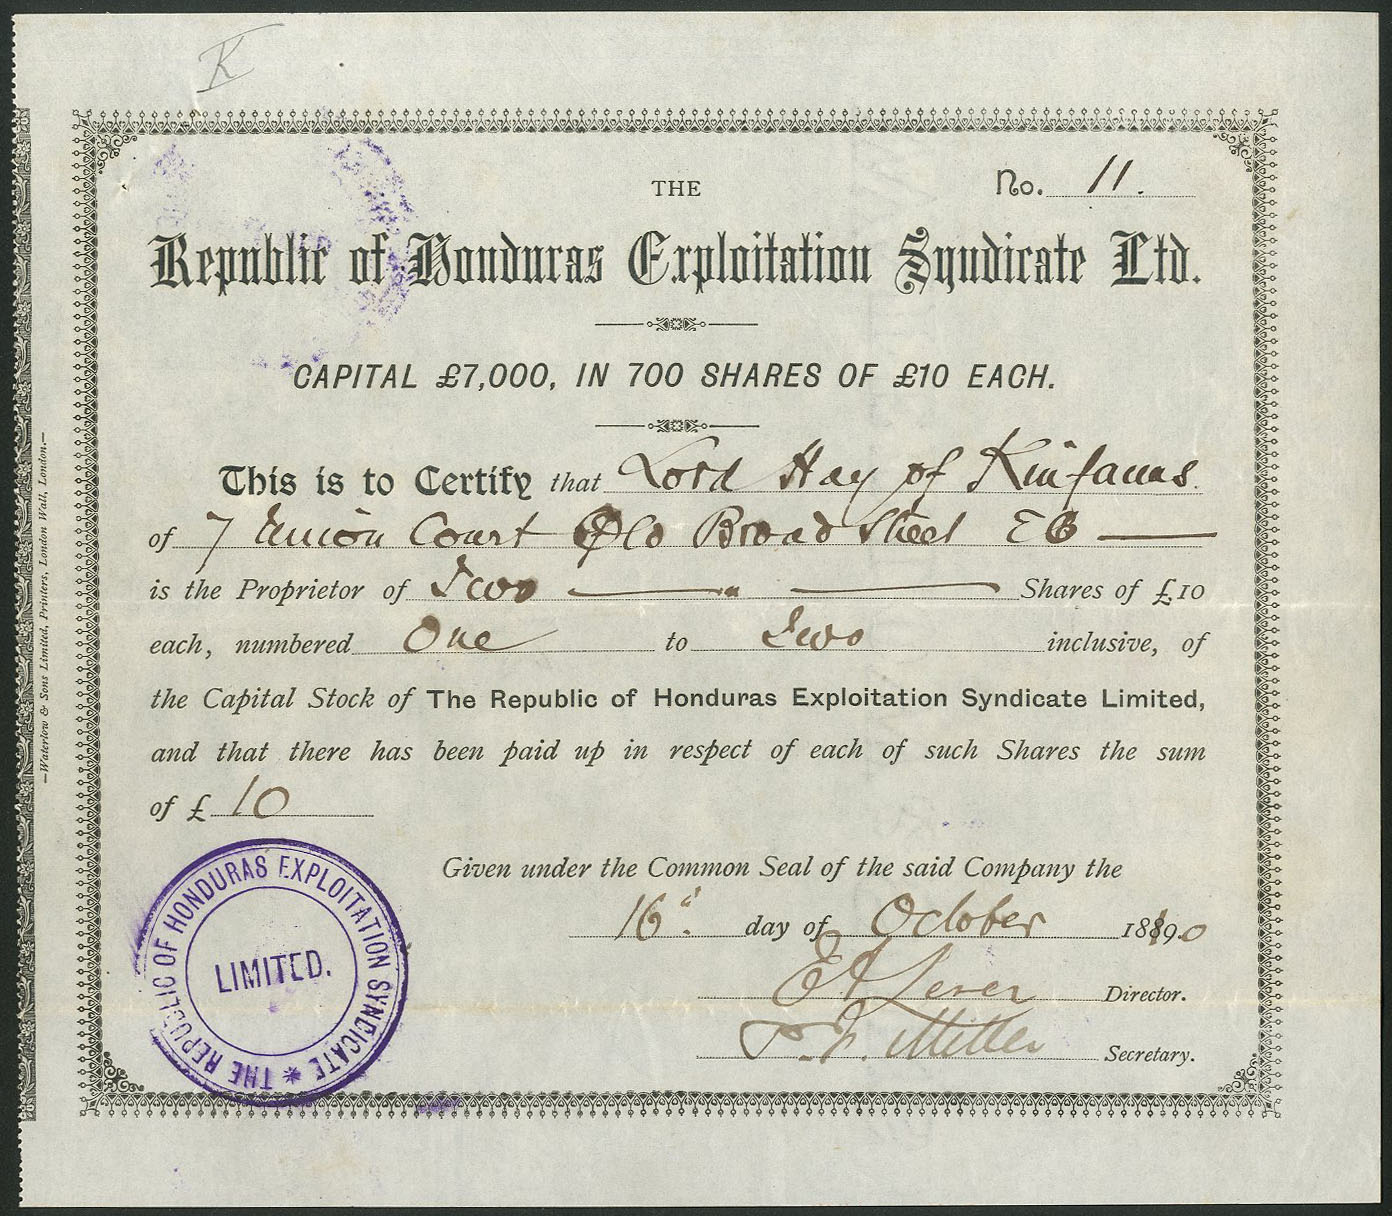 K
THE
No. 11.
Republic of Honduras Exploitation Syndicate Ltd.
CAPITAL £7,000, IN 700 SHARES OF £10 EACH.
This is to Certify that Lord Hay of Kinfauns.
of 7 Union Court Old Broad Street EC
is the Proprietor of Two " Shares of £10
each, numbered One to Two inclusive, of
the Capital Stock of The Republic of Honduras Exploitation Syndicate Limited,
and that there has been paid up in respect of each of such Shares the sum
of £ 10
Given under the Common Seal of the said Company the
16" day of October 1890
Director.
Miller Secretary.
THE REPUBLIC OF HONDURAS EXPLOITATION SYNDICATE *
LIMITED.
—Waterlow & Sons Limited, Printers, London Wall, London.—